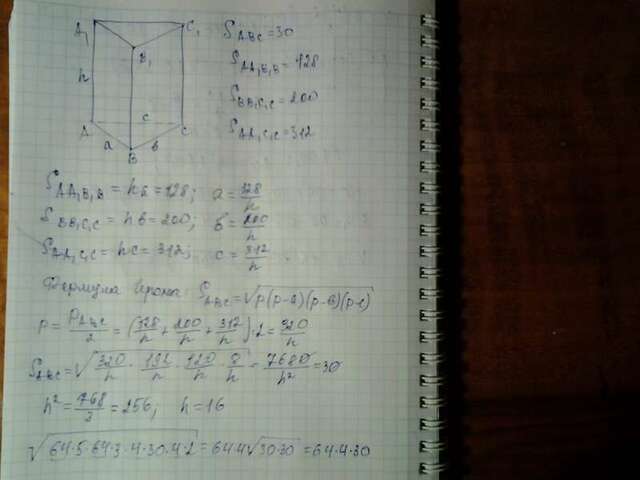 A₁ C₁ S_ABC = 30
B₁ S_AA₁B₁B = 128
h S_BB₁C₁C = 200
A c C S_AA₁C₁C = 312
a B в
S_AA₁B₁B = ha = 128; a = 128/h
S_BB₁C₁C = hв = 200; в = 200/h
S_AA₁C₁C = hc = 312; c = 312/h
Формула Герона S_ABC = √p(p-a)(p-в)(p-c)
p = P_ABC/2 = (128/h + 200/h + 312/h):2 = 320/h
S_ABC = √320/h · 192/h · 120/h · 8/h = 7680/h² = 30
h² = 768/3 = 256; h = 16
√64·5·64·3·4·30·4·2 = 64·4√30·30 = 64·4·30